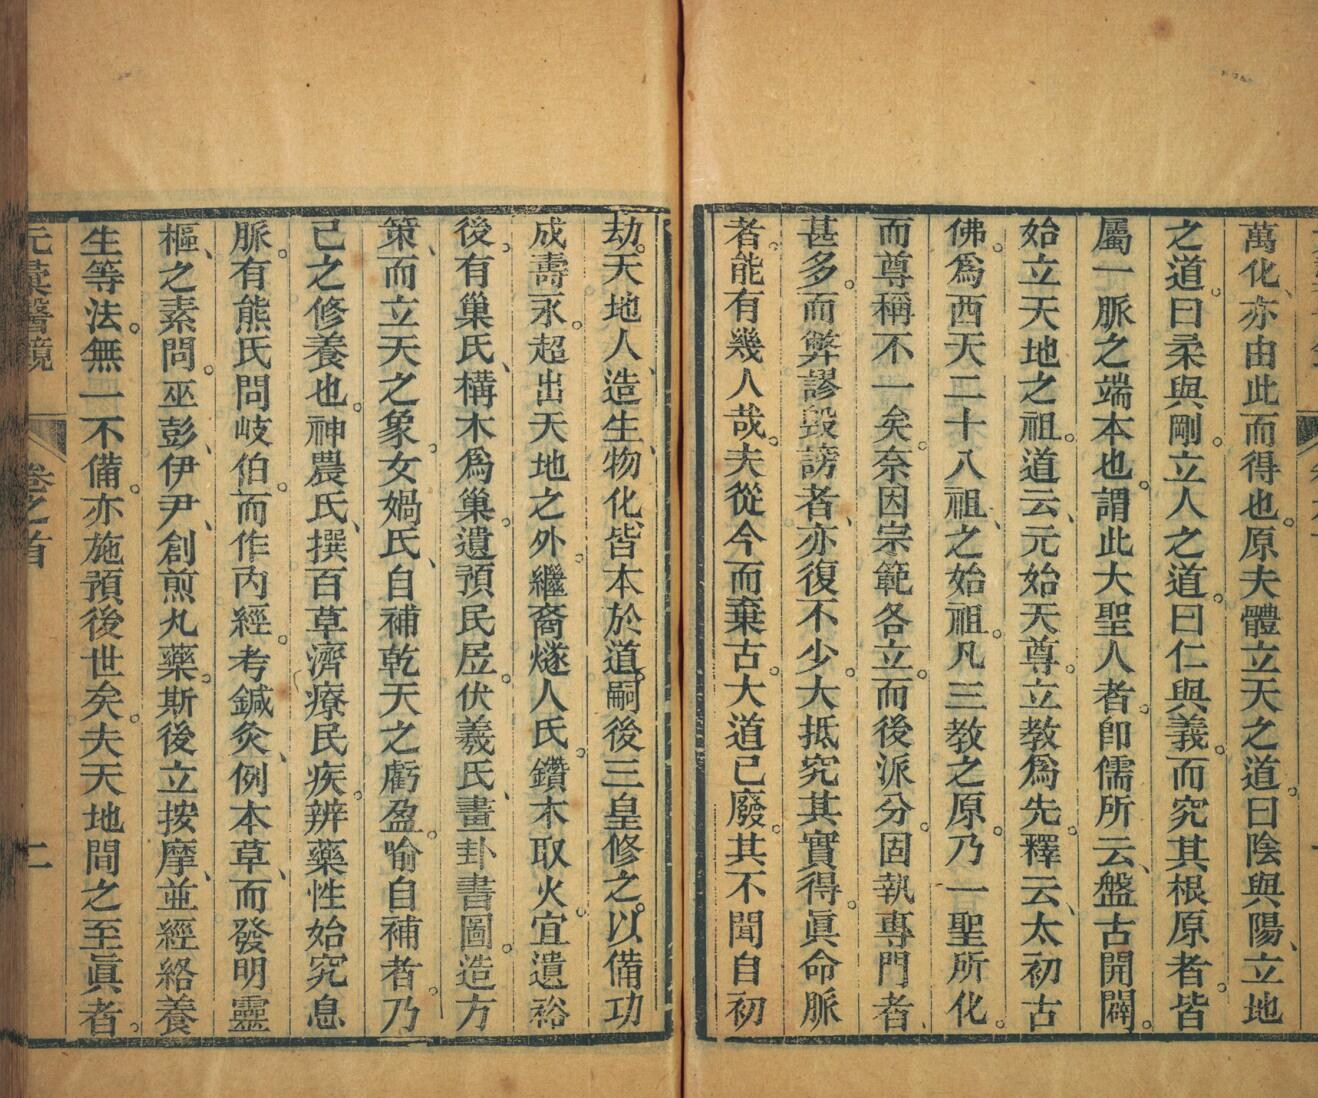 萬化、亦由此而得也。原夫體立天之道。曰陰與陽、立地
之道。曰柔與剛。立人之道。曰仁與義。而究其根原者。皆
屬一脈之端本也。謂此大聖人者。卽儒所云、盤古開闢。
始立天地之祖。道云、元始天尊。立教爲先。釋云、太初古
佛。爲西天二十八祖、之始祖。凡三教之原。乃一聖所化。
而尊稱不一矣。奈因宗範各立。而後派分。固執專門者、
甚多。而弊謬毀謗者、亦復不少。大抵究其實得。眞命脈
者。能有幾人哉。夫從今而棄古。大道已廢。其不聞自初
劫。天地人、造生、物化、皆本於道。嗣後三皇修之。以備功
成壽永。超出天地之外。繼裔燧人氏。鑽木取火。宜遺裕
後。有巢氏、構木爲巢。遺預民居。伏羲氏、畫卦書圖。造方
策、而立天之象。女媧氏、自補乾天之虧盈。喻自補者。乃
己之修養也。神農氏、撰百草濟療民疾。辨藥性始究息
脈。有熊氏問岐伯。而作内經。考鍼灸、例本草、而發明靈
樞、之素問。巫彭、伊尹、創煎丸藥。斯後立按摩、並經絡養
生等法。無一不備。亦施預後世矣。夫天地間之至眞者。
元彙醫鏡 卷之首 二